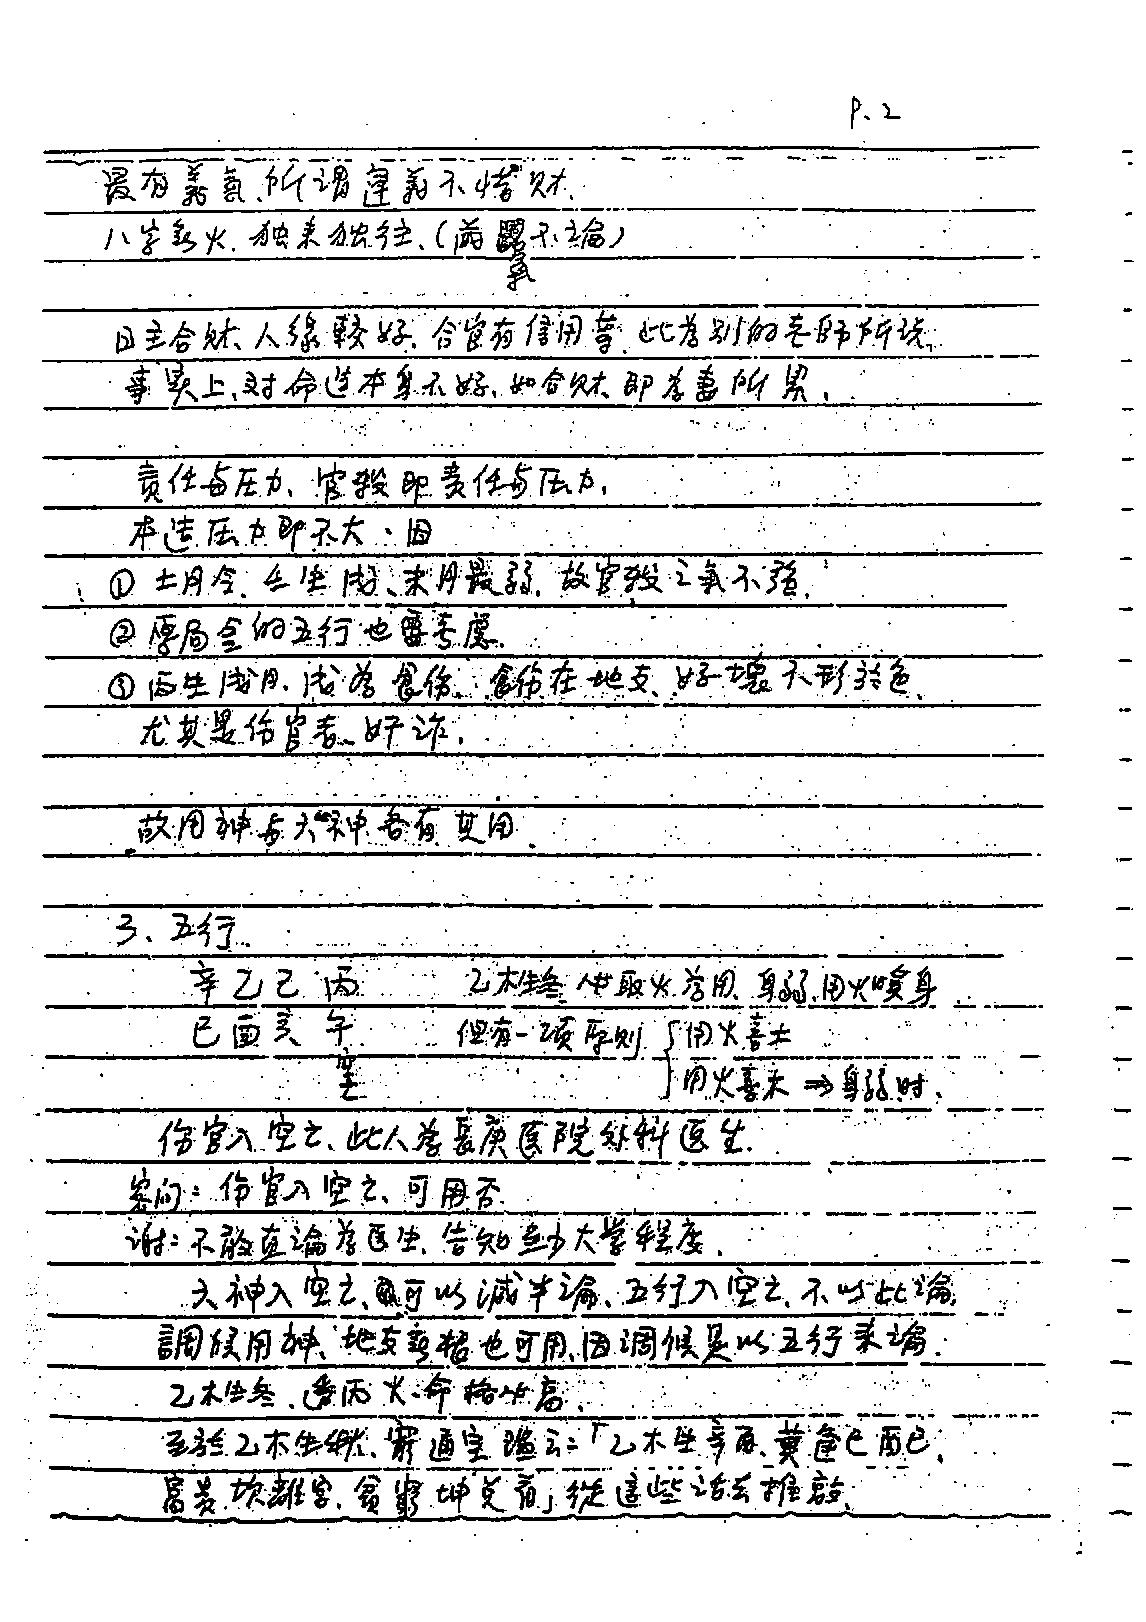 P.2
最有義氣、所謂逢義不惜財.
八字缺火、独来独往、(滿不論)
氣
日主合财、人緣較好、合官有信用等、此為别的老師所说,
事实上、对命造本身不好、如合财、即為妻所累、
责任与压力、官殺即责任与压力、
本造压力即不大、因
① 土月令、生, 未月最弱、故官殺之氣不強.
② 原局合的五行也要考慮.
③ 丙生月、為食伤、食伤在地支、好壞不形於色
尤其是伤官者、好诈.
故用神与六神各有其用.
3、五行.
辛乙己丙 乙木生冬、必取火為用、身弱、用火暖身
巳酉亥午 但有一项原则 用火喜土
空 用火喜木 ⇒ 身弱时.
伤官入空亡、此人為長庚医院外科医生.
客问:伤官入空亡、可用否
谢:不敢直論為医生、告知至少大学程度.
六神入空亡、可以減半論、五行入空亡、不以此論,
調候用神、地支藏格也可用、因调候是以五行来論.
乙木生冬、透丙火、命格必高.
至於乙木生秋、窮通宝鑑云:「乙木生辛酉、黄逢巳酉巳、
富贵坎離宫、貧窮坤艮宮」從這些话去推敲.